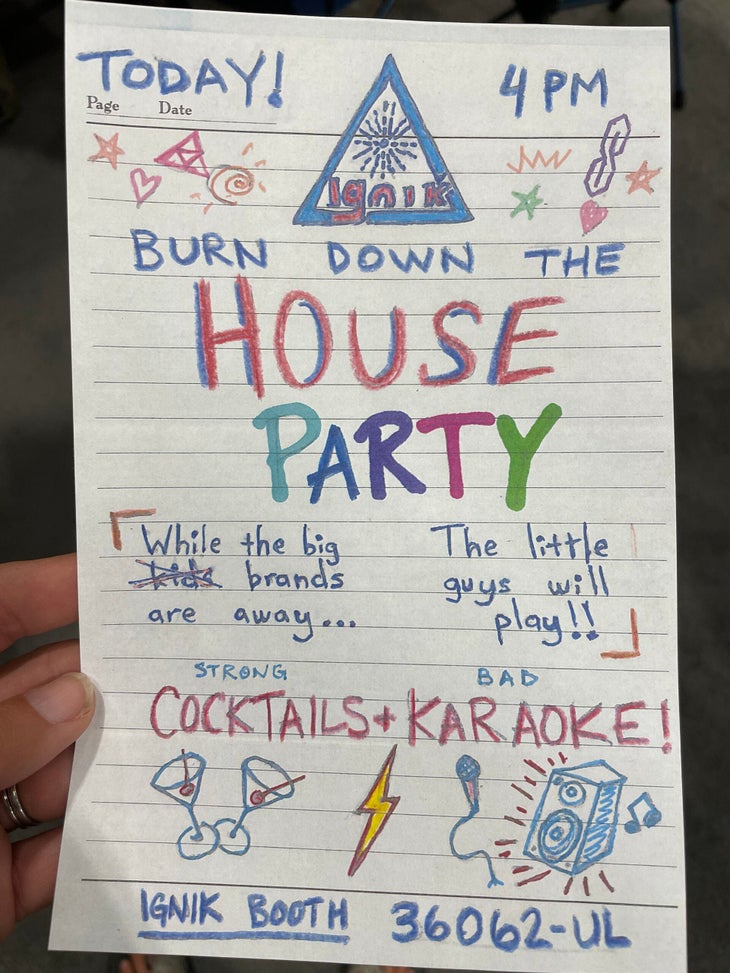 TODAY! 4 PM
Page Date
Ignik
BURN DOWN THE
HOUSE
PARTY
While the big
kids brands
are away...
The little
guys will
play!!
STRONG BAD
COCKTAILS + KARAOKE!
IGNIK BOOTH 36062-UL